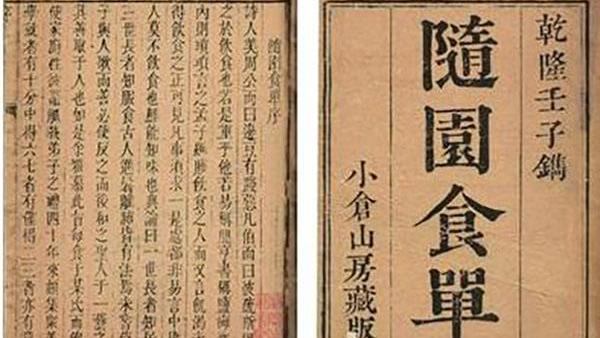 乾隆壬子鐫
隨園食單
小倉山房藏版
隨園食單序
詩人美周公而曰籩豆有踐惡凡伯而曰彼疏斯
之於飲食也若是重乎他若易稱鼎亨書稱鹽梅
內則瑣瑣言之孟子雖賤飲食之人而又言飢渴
得飲食之正可見凡事須求一是處都非易言中庸
人莫不飲食也鮮能知味也典論曰一世長者知居
三世長者知服食古人進鬐離肺皆有法焉未嘗
子與人歌而善必使反之而後和之聖人于一藝之
其善取于人也如是余雅慕此旨每食于某氏而飽
使家廚往彼灶觚執弟子之禮四十年來頗集眾美
學就者有十分中得六七者有僅得二三者亦有竟